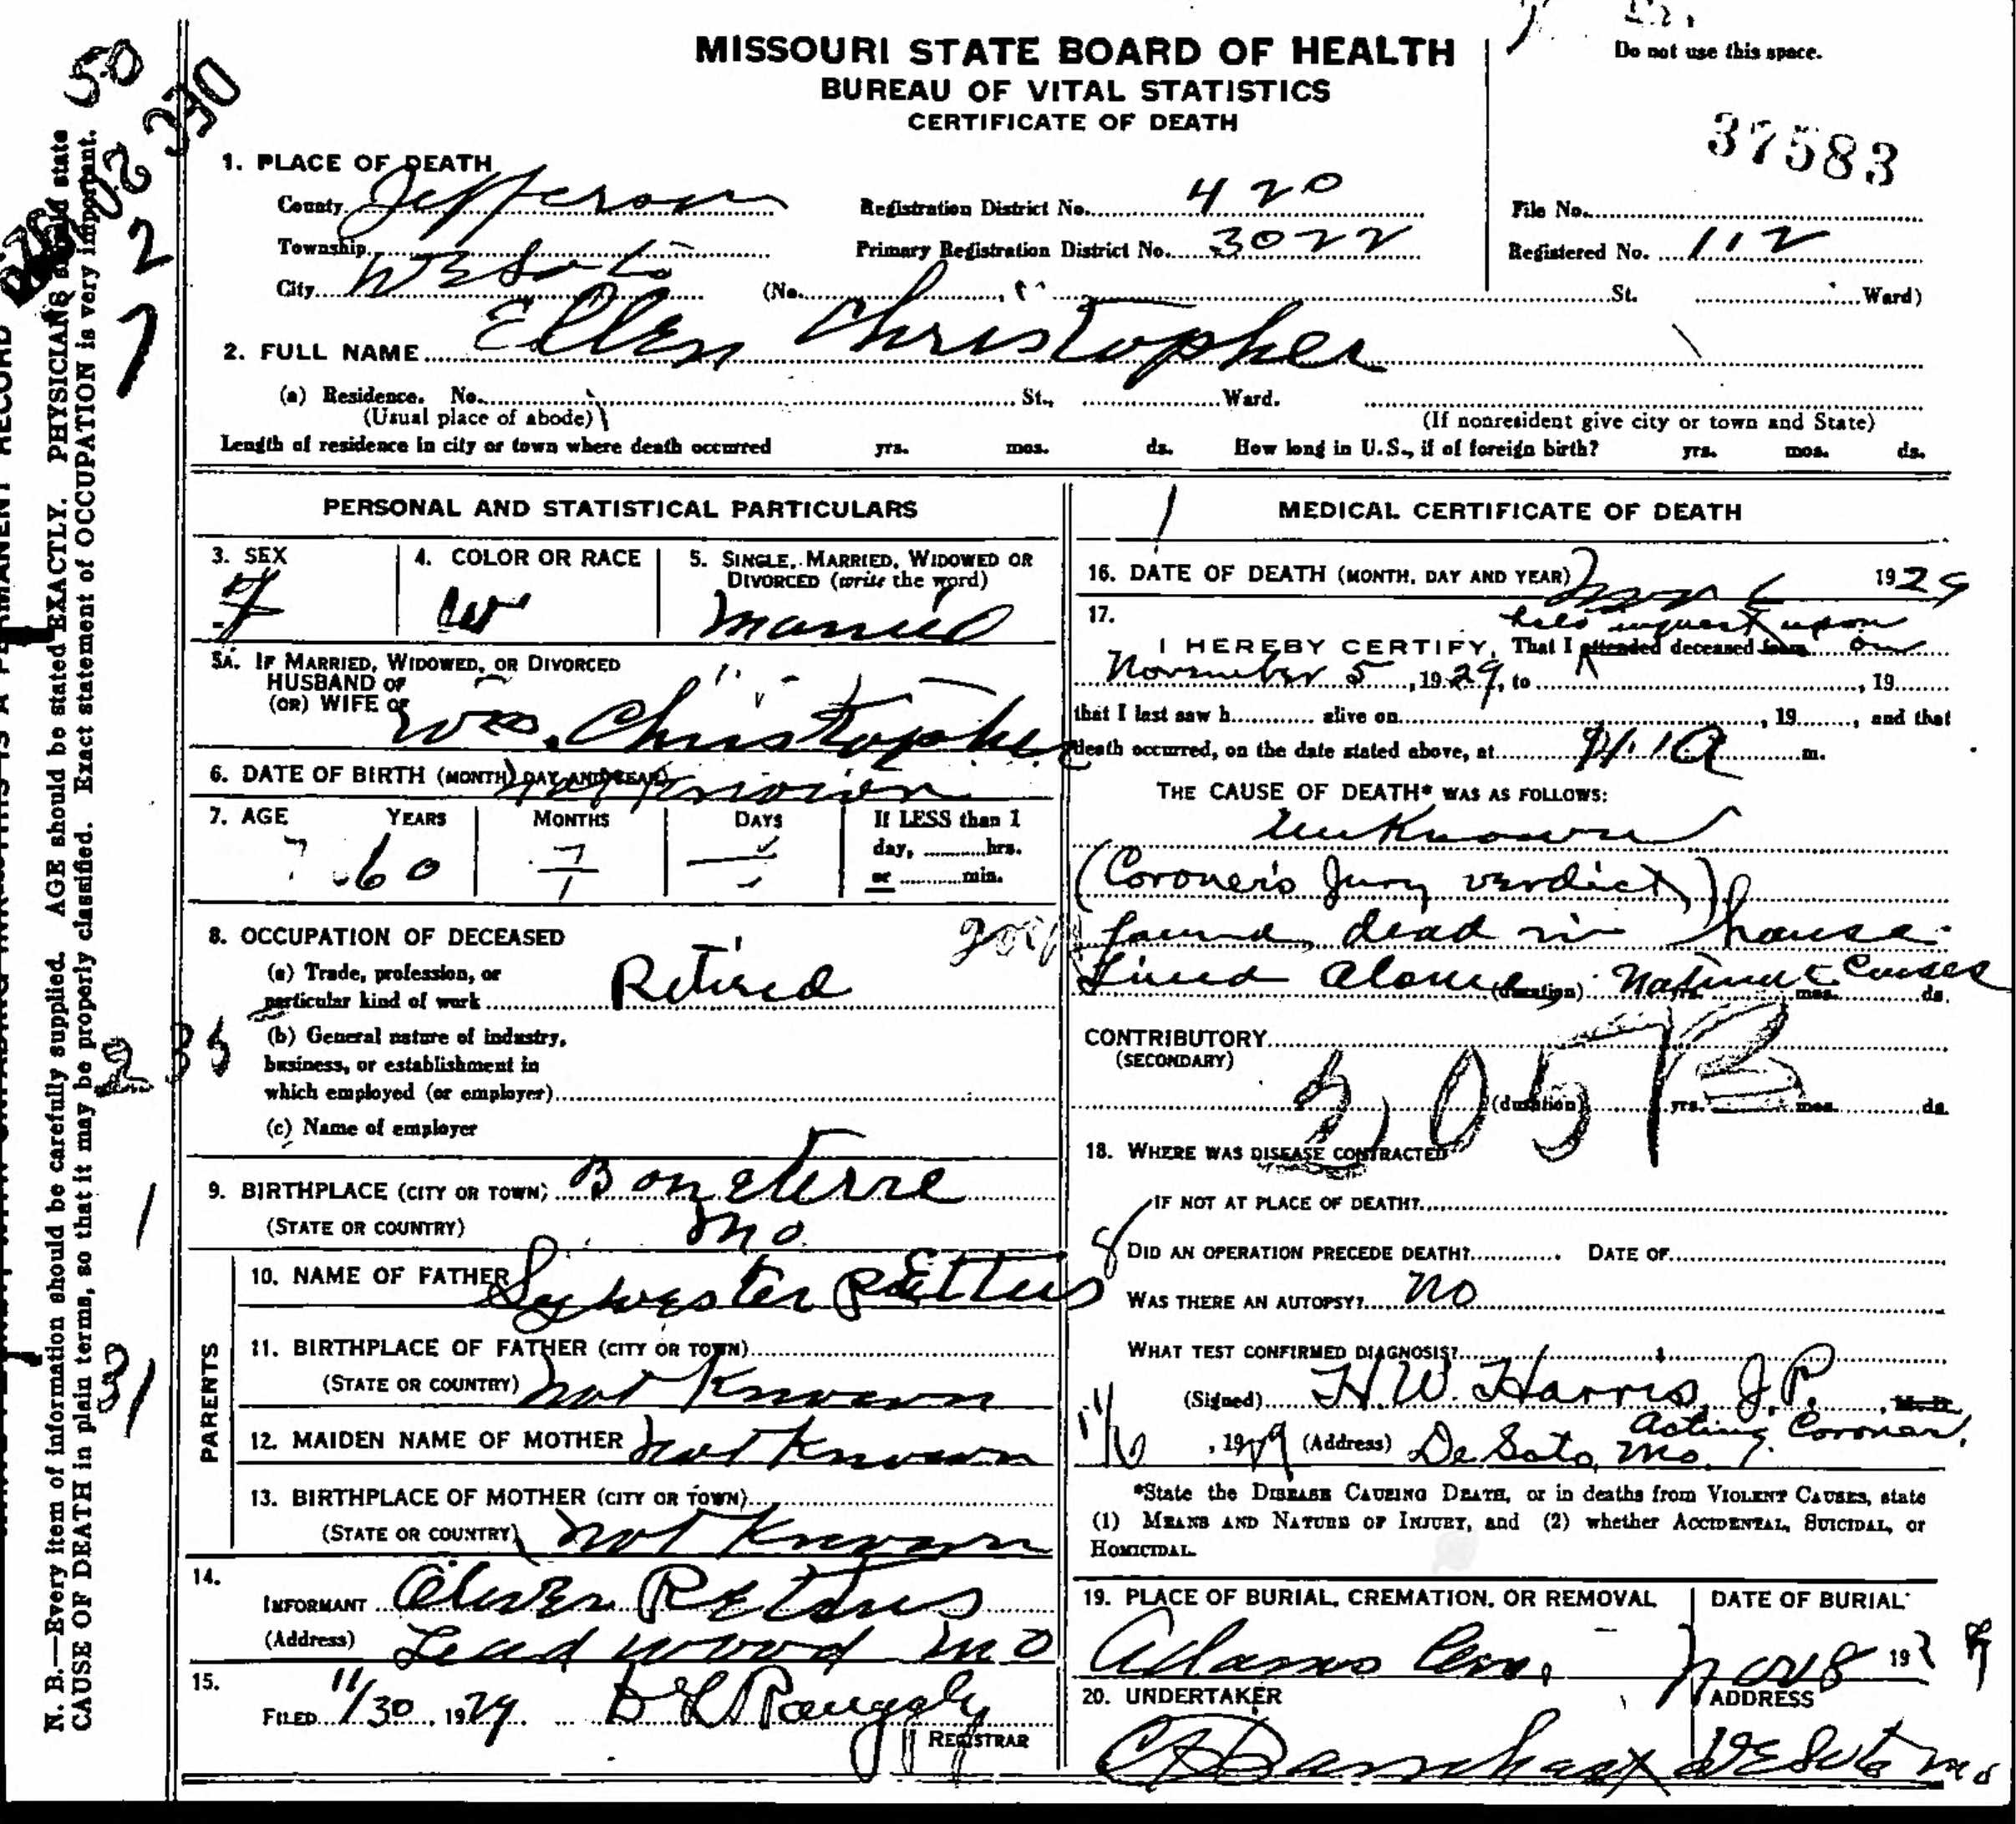 MISSOURI STATE BOARD OF HEALTH
BUREAU OF VITAL STATISTICS
CERTIFICATE OF DEATH
Do not use this space.
37583
1. PLACE OF DEATH
County Jefferson
Registration District No. 420
File No.
Township
Primary Registration District No. 3022
Registered No. 112
City De Soto (No. St. Ward)
2. FULL NAME Ellen Christopher
(a) Residence. No. St., Ward.
(Usual place of abode) (If nonresident give city or town and State)
Length of residence in city or town where death occurred yrs. mos. ds. How long in U.S., if of foreign birth? yrs. mos. ds.
PERSONAL AND STATISTICAL PARTICULARS
3. SEX
4. COLOR OR RACE
5. SINGLE, MARRIED, WIDOWED OR
DIVORCED (write the word)
F
W
Married
5A. IF MARRIED, WIDOWED, OR DIVORCED
HUSBAND OF
(OR) WIFE OF
Wm. Christopher
6. DATE OF BIRTH (MONTH, DAY AND YEAR) not known
7. AGE YEARS MONTHS DAYS If LESS than 1
day, hrs.
or min.
60
8. OCCUPATION OF DECEASED
(a) Trade, profession, or
particular kind of work Retired
(b) General nature of industry,
business, or establishment in
which employed (or employer)
(c) Name of employer
9. BIRTHPLACE (CITY OR TOWN) Boneterre
(STATE OR COUNTRY) Mo
PARENTS
10. NAME OF FATHER Sylvester Pettus
11. BIRTHPLACE OF FATHER (CITY OR TOWN)
(STATE OR COUNTRY) not Known
12. MAIDEN NAME OF MOTHER not Known
13. BIRTHPLACE OF MOTHER (CITY OR TOWN)
(STATE OR COUNTRY) not Known
14.
INFORMANT Oliver Pettus
(Address) Lead wood Mo
15.
FILED 11/30, 1929
REGISTRAR
MEDICAL CERTIFICATE OF DEATH
16. DATE OF DEATH (MONTH, DAY AND YEAR) Nov 6 1929
17.
held inquest upon
I HEREBY CERTIFY, That I attended deceased from on
November 5, 1929, to , 19
that I last saw h alive on , 19 , and that
death occurred, on the date stated above, at m.
THE CAUSE OF DEATH* WAS AS FOLLOWS:
Unknown
(Coroner's Jury verdict)
found dead in house
Lived alone (duration) Natural Causes yrs. mos. ds.
CONTRIBUTORY
(SECONDARY)
(duration) yrs. mos. ds.
18. WHERE WAS DISEASE CONTRACTED
IF NOT AT PLACE OF DEATH?
DID AN OPERATION PRECEDE DEATH? DATE OF
WAS THERE AN AUTOPSY? No
WHAT TEST CONFIRMED DIAGNOSIS?
(Signed) H.W. Harris, J.P. , M.D.
Acting Coroner,
11/6, 1929 (Address) De Soto, Mo.
*State the DISEASE CAUSING DEATH, or in deaths from VIOLENT CAUSES, state
(1) MEANS AND NATURE OF INJURY, and (2) whether ACCIDENTAL, SUICIDAL, or
HOMICIDAL.
19. PLACE OF BURIAL, CREMATION, OR REMOVAL
DATE OF BURIAL
Adams Cem. Nov 8 1929
20. UNDERTAKER
ADDRESS
De Soto Mo
N. B.—Every item of information should be carefully supplied. AGE should be stated EXACTLY. PHYSICIANS should state
CAUSE OF DEATH in plain terms, so that it may be properly classified. Exact statement of OCCUPATION is very important.